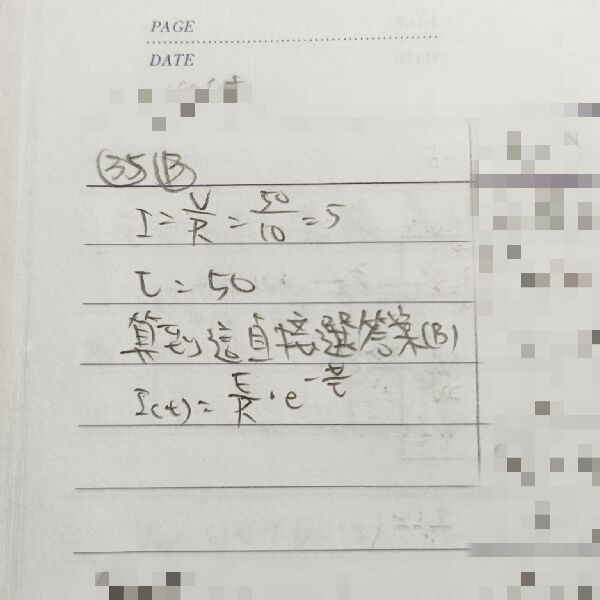 PAGE
DATE
(35)(B)
I = V/R = 50/10 = 5
τ = 50
算到這直接選答案(B)
I(t) = E/R · e^(-t/τ)